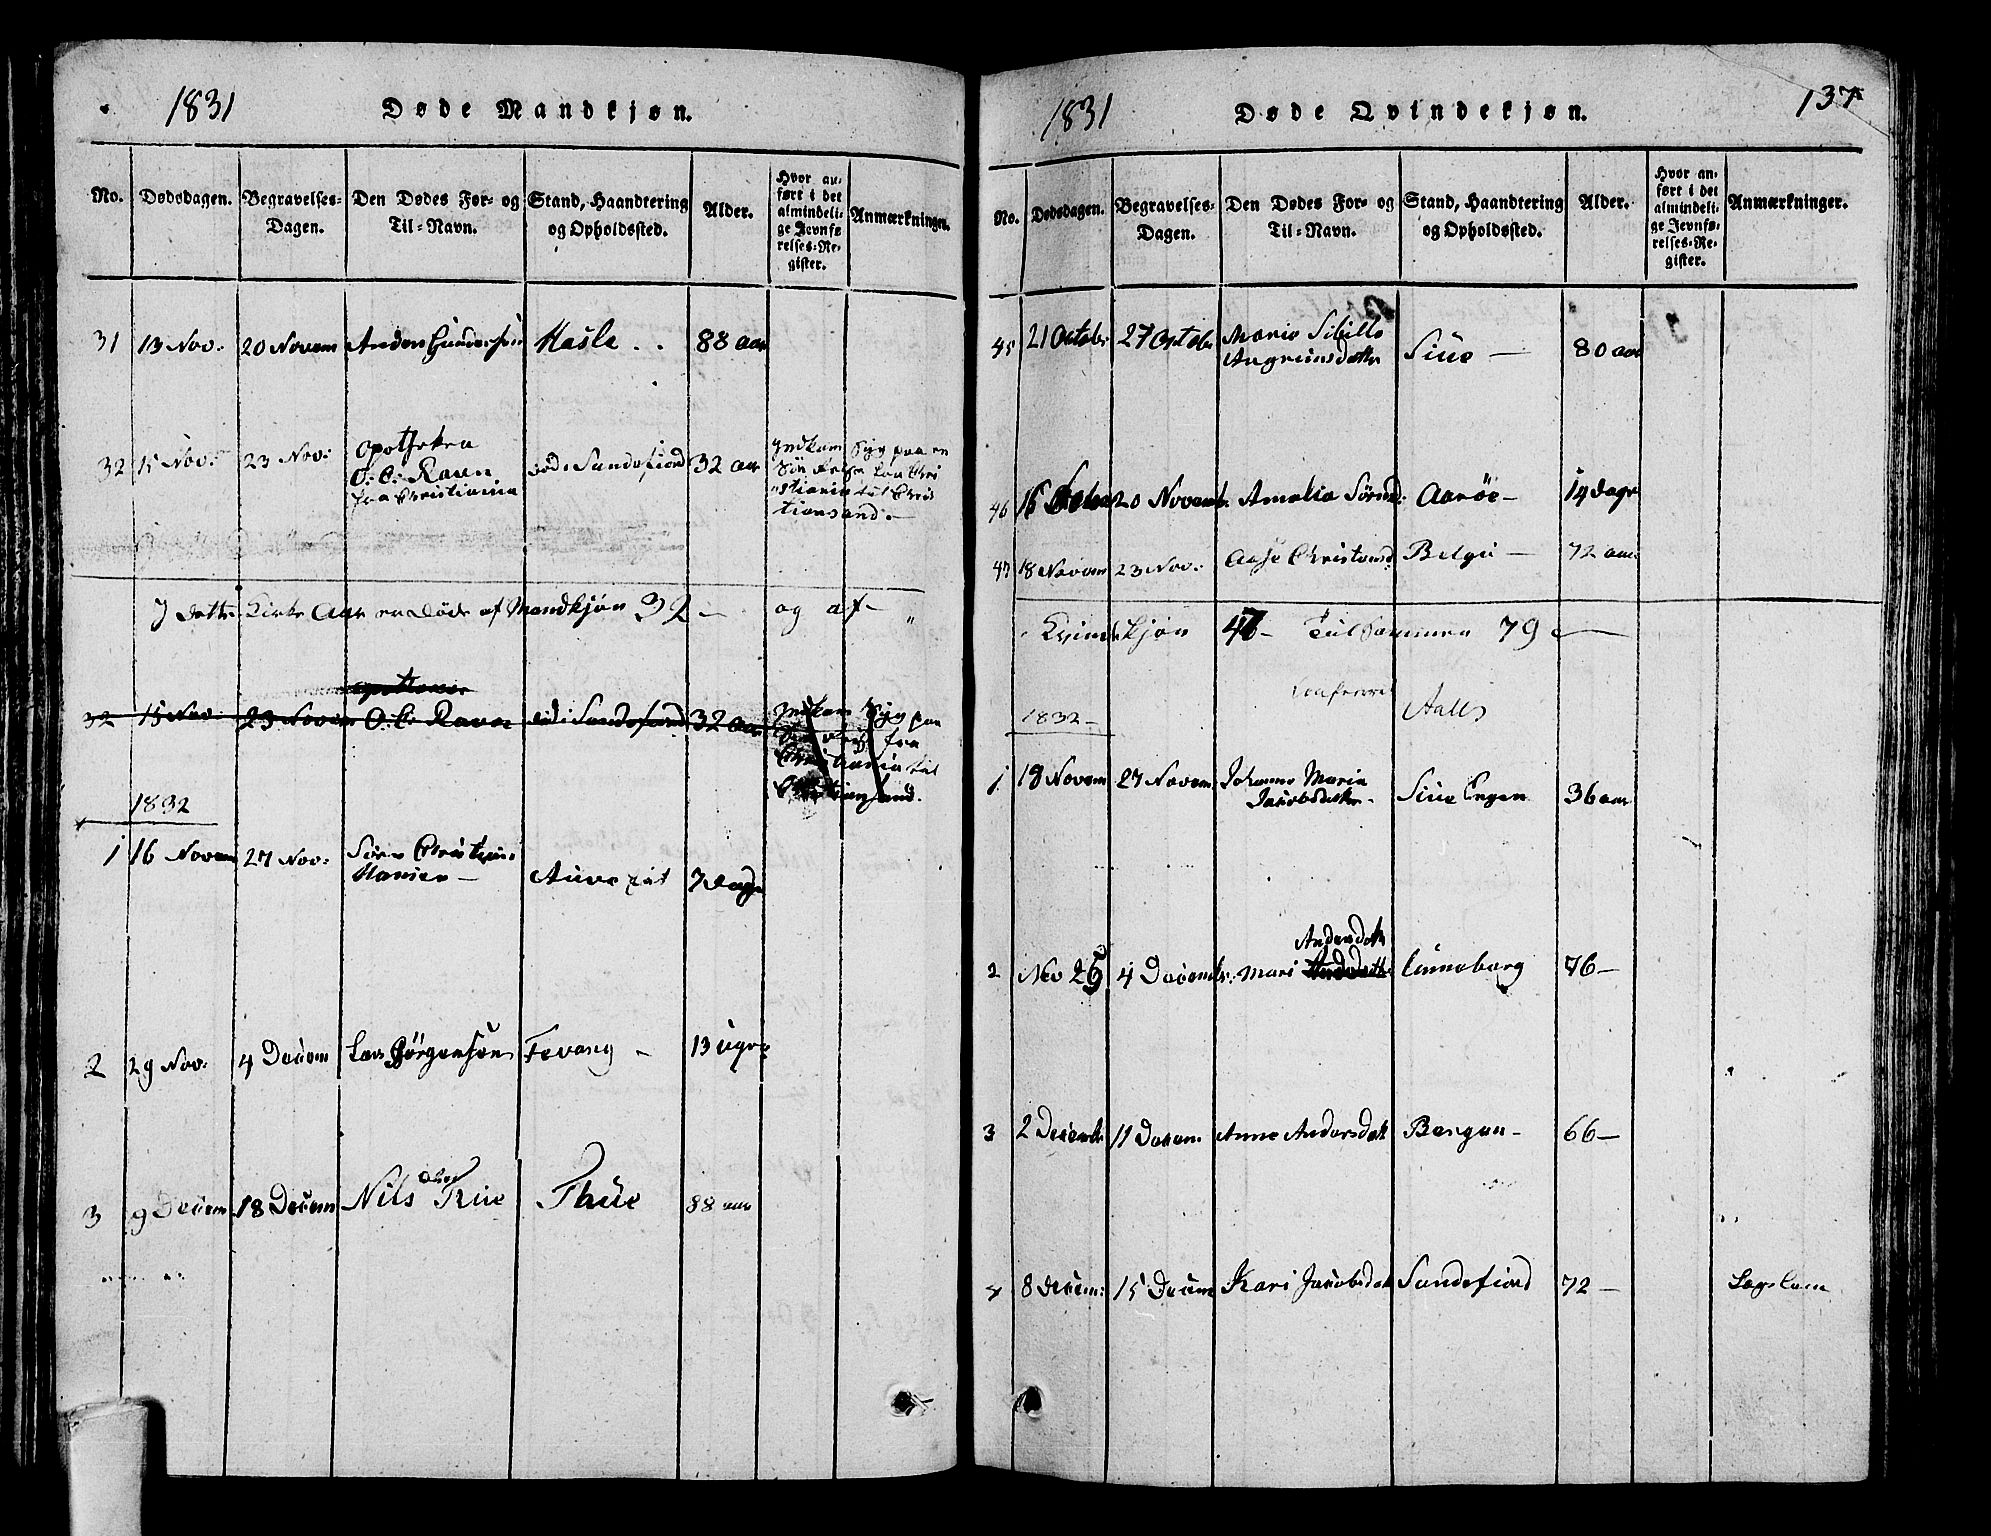 1831 Døde Mandkjøn.
No. Dødsdagen. Begravelses-Dagen. Den Dødes For- og Til-Navn. Stand, Haandtering og Opholdssted. Alder. Hvor anført i det almindelige Jevnførelses-Register. Anmærkninger.
31 13 Nov: 20 Novem Anders Gundersen Hasle . . 88 aar
32 15 Nov: 23 Nov: Apotheker
O: C: Raven
fra Christiania
død i Sandefiord 32 aar
Indkom Syg paa en
Søe Reise fra Chri
stiania til Chris
tiansand. –
I dette Kirke Aar er døde af Mandkjøn 32 – og af –
Apotheker
32 15 Nov: 23 Novem O: C: Raven død i Sandefiord 32 aar
Indkom Syg paa
Søe Reise fra
Christiania til
Christiansand.
1832
1 16 Novem 27 Nov: Søren Christian
Hansen – 7 Dage
2 29 Nov: 4 Decem Lars Jørgensen Fevang – 13 Uger
3 9 Decem 18 Decem Nils Thue Thue 88 aar
1831 Døde Qvindekjøn. 137
No. Dødsdagen. Begravelses-Dagen. Den Dødes For- og Til-Navn. Stand, Haandtering og Opholdssted. Alder. Hvor anført i det almindelige Jevnførelses-Register. Anmærkninger.
45 21 Octobr 27 Octobr Maria Sibille
Angrimsdatter Siue – 80 aar
46 16 20 Novemb. Amalia Sørensd: Aarøe – 14 dage
47 18 Novem 23 Nov: Aase Christensd: 72 aar
Kvindekjøn 47 – Tilsammen 79 –
1832 –
1 18 Novem 27 Novem Johanne Maria
Jacobsdatter – Siue Engen 36 aar
Andersdatter
2 Nov 25 4 Decembr: Mari Lunneborg 76 –
3 2 Decembr 11 Decem Anne Andersdatt Bergan – 66 –
4 8 Decem: 15 Decem Kari Jacobsdatt Sandefiord 72 – Lægslem